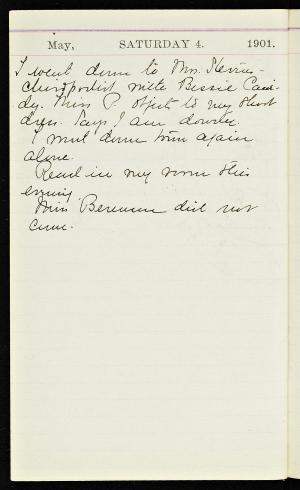 May, SATURDAY 4. 1901.
I went down to Mrs.
chiropodist with Bessie Cau-
dy. Miss P. objects to my short
dress. Says I am
I went down town again
alone.
Read in my room this
evening.
Miss did not
come.